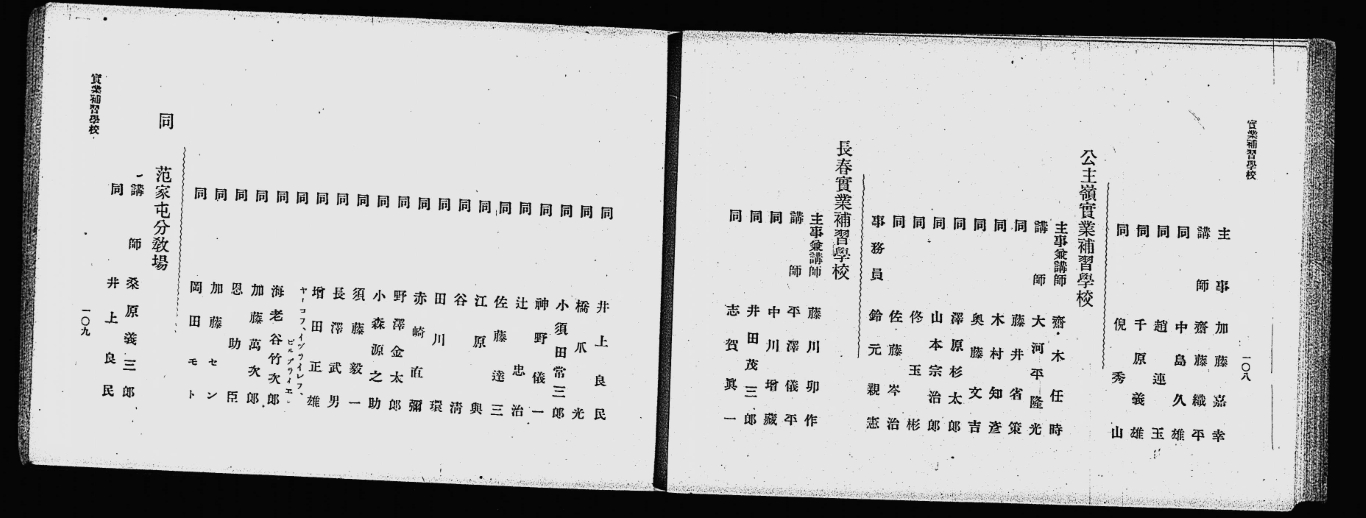 實業補習學校
一〇八
主事 加藤嘉幸
講師 齋藤織平
同 中島久雄
同 趙連玉
同 千原義雄
同 倪秀山
公主嶺實業補習學校
主事兼講師 齋木任時
講師 大河平隆光
同 藤井省策
同 木村知彦
同 奥藤文吉
同 澤原杉太郎
同 山本宗治郎
同 佟玉彬
同 佐藤岑治
事務員 鈴元親憲
長春實業補習學校
主事兼講師 藤川卯作
講師 平澤儀平
同 中川增藏
同 井田茂三郎
同 志賀眞一
同 井上良民
同 橋爪光
同 小須田常三郎
同 神野儀一
同 辻忠治
同 佐藤達三
同 江原興
同 谷清
同 田川環
同 赤崎直彌
同 野澤金太郎
同 小森源之助
同 須藤毅一
同 長澤武男
同 增田正雄
同 ヤーコフ、イヅライレフ、
同 海老谷竹次郎
同 加藤萬次郎
同 恩助臣
同 加藤セン
同 岡田モト
同 范家屯分教場
講師 桑原義三郎
同 井上良民
實業補習學校
一〇九